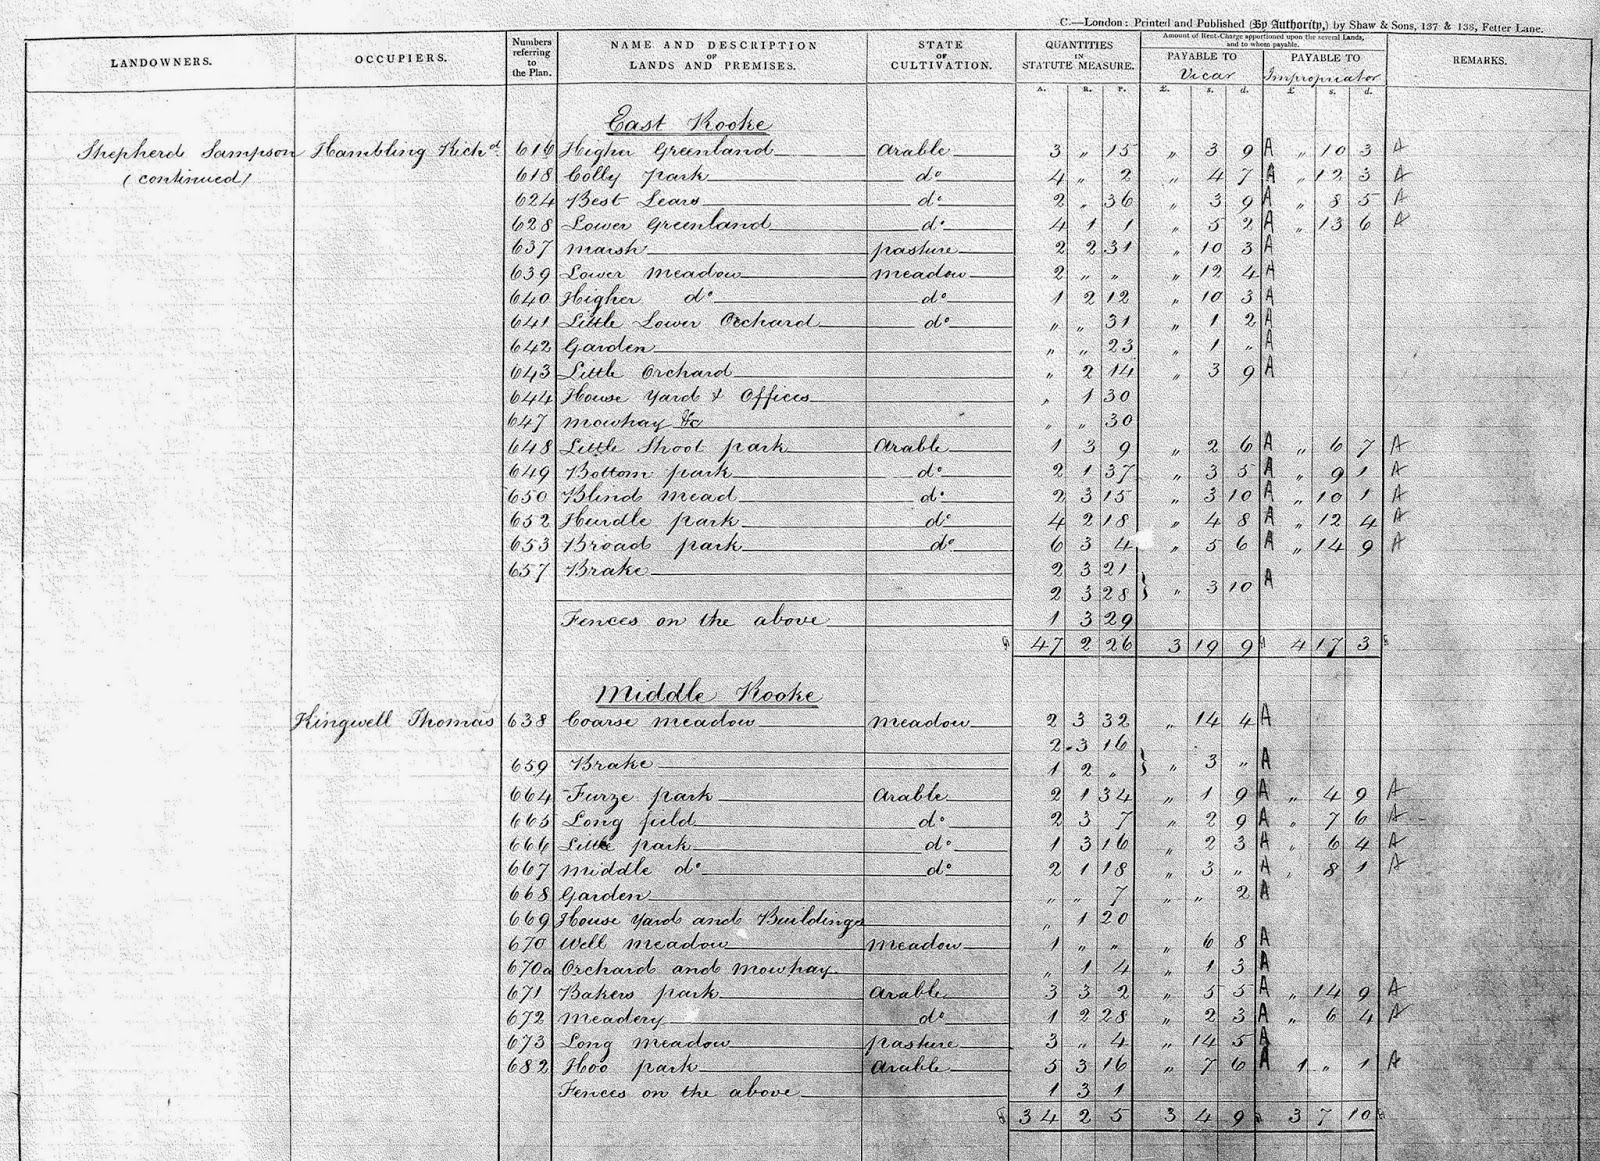 C.—London: Printed and Published (By Authority,) by Shaw & Sons, 137 & 138, Fetter Lane.
LANDOWNERS. OCCUPIERS. Numbers referring to the Plan. NAME AND DESCRIPTION OF LANDS AND PREMISES. STATE OF CULTIVATION. QUANTITIES IN STATUTE MEASURE. Amount of Rent-Charge apportioned upon the several Lands, and to whom payable. PAYABLE TO Vicar PAYABLE TO Impropriator REMARKS.
A. R. P. £. s. d. £ s. d.
East Rooke
Shepherd Sampson Hambling Richd. 616 Higher Greenland Arable 3 " 15 " 3 9 A " 10 3 A
(continued) 618 Colly park do 4 " 2 " 4 7 A " 12 3 A
624 Best Lears do 2 " 36 " 3 9 A " 8 5 A
628 Lower Greenland do 4 1 1 " 5 2 A " 13 6 A
637 Marsh pasture 2 2 31 " 10 3 A
639 Lower Meadow meadow 2 " " " 12 4 A
640 Higher do do 1 2 12 " 10 3 A
641 Little Lower Orchard do " " 31 " 1 2 A
642 Garden " " 23 " 1 " A
643 Little Orchard " 2 14 " 3 9 A
644 House Yard & Offices " 1 30
647 Mowhay &c " " 30
648 Little Shoot park Arable 1 3 9 " 2 6 A " 6 7 A
649 Bottom park do 2 1 37 " 3 5 A " 9 1 A
650 Blind Mead do 2 3 15 " 3 10 A " 10 1 A
652 Hurdle park do 4 2 18 " 4 8 A " 12 4 A
653 Broad park do 6 3 4 " 5 6 A " 14 9 A
657 Brake 2 3 21
2 3 28 } " 3 10 A
Fences on the above 1 3 29
47 2 26 3 19 9 4 17 3
Middle Rooke
Kingwell Thomas 638 Coarse meadow meadow 2 3 32 " 14 4 A
2 3 16
659 Brake 1 2 " } " 3 " A
664 Furze park Arable 2 1 34 " 1 9 A " 4 9 A
665 Long field do 2 3 7 " 2 9 A " 7 6 A
666 Little park do 1 3 16 " 2 3 A " 6 4 A
667 Middle do do 2 1 18 " 3 " A " 8 1 A
668 Garden " " 7 " " 2 A
669 House Yard and Buildings " 1 20
670 Well meadow meadow 1 " " " 6 8 A
670a Orchard and Mowhay " 1 4 " 1 3 A
671 Bakers park Arable 3 3 2 " 5 5 A " 14 9 A
672 Meadery do 1 2 28 " 2 3 A " 6 4 A
673 Long meadow pasture 3 " 4 " 14 5 A
682 Hoo park Arable 5 3 16 " 7 6 A 1 " 1 A
Fences on the above 1 3 1
34 2 5 3 4 9 3 7 10